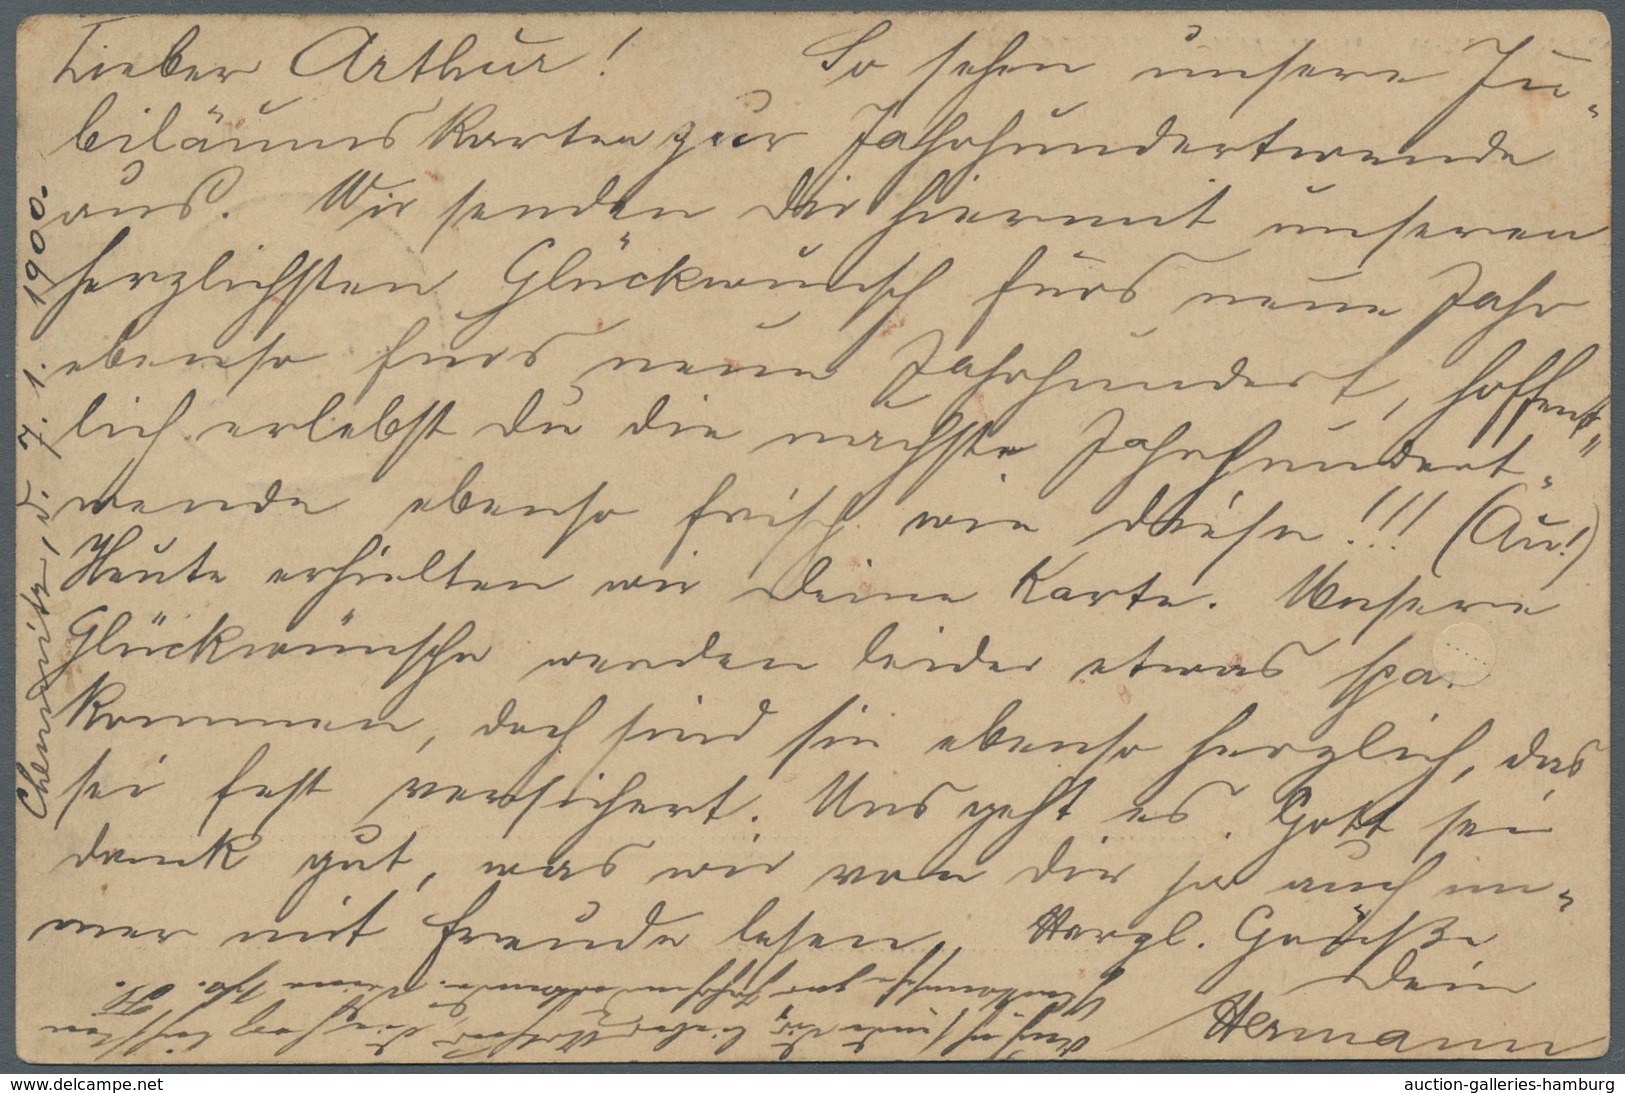 Lieber Arthur! So sehen unsere Ju-
biläumskarten zur Jahrhundertwende
aus. Wir senden Dir hiermit unseren
herzlichsten Glückwunsch fürs neue Jahr
ebenso fürs neue Jahrhundert, hoffent-
lich erlebst du die nächste Jahrhundert-
wende ebenso frisch wie diese!!! (Au!)
Heute erhielten wir Deine Karte. Unsere
Glückwünsche werden leider etwas spä
kommen, doch sind sie ebenso herzlich, das
sei fest versichert. Uns geht es Gott sei
dank gut, was wir von Dir ja auch im-
mer mit Freude lesen. Herzl. Grüße
Dein
Hermann
Chemnitz, d. 7. 1. 1900.
Auch ich sende Dir, lieber Arthur, die herzlichsten
Glückwünsche zur Jahrhundertwende. Deine
delcampe.net
auction-galleries-hamburg